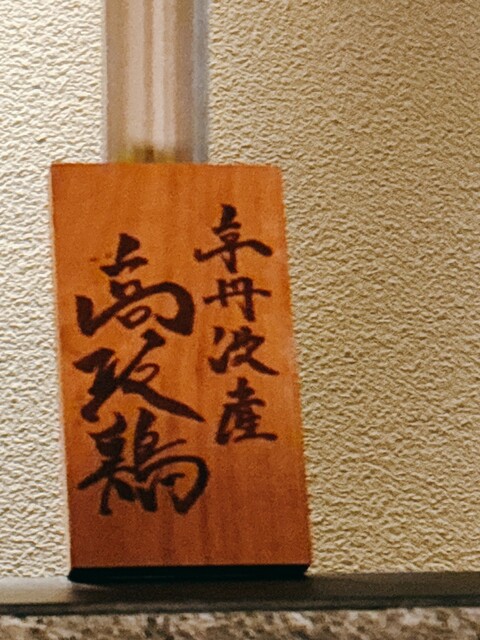 京丹波産
高坂鶏